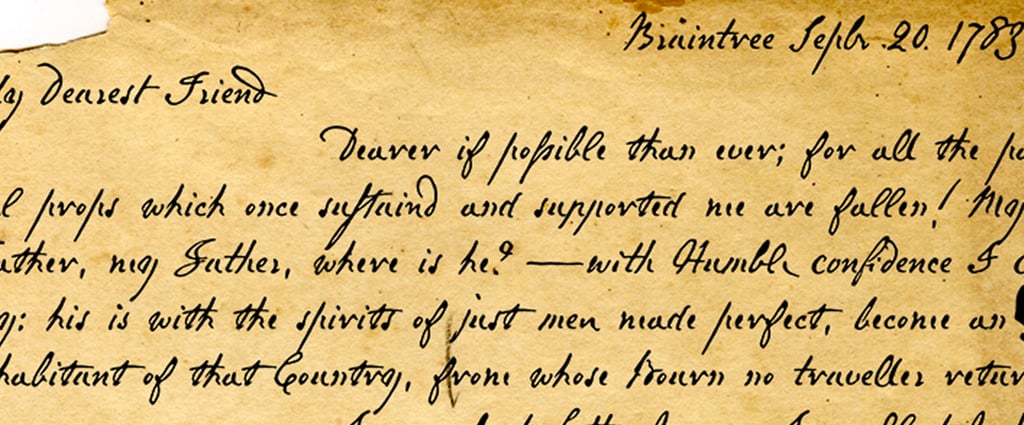 Braintree Sepbr. 20. 1783
Dearest Friend
Dearer if possible than ever; for all the
props which once sustaind and supported me are fallen! My
my Father, where is he? —with Humble confidence I
his is with the spirits of just men made perfect, become an
of that Country, from whose Bourn no traveller